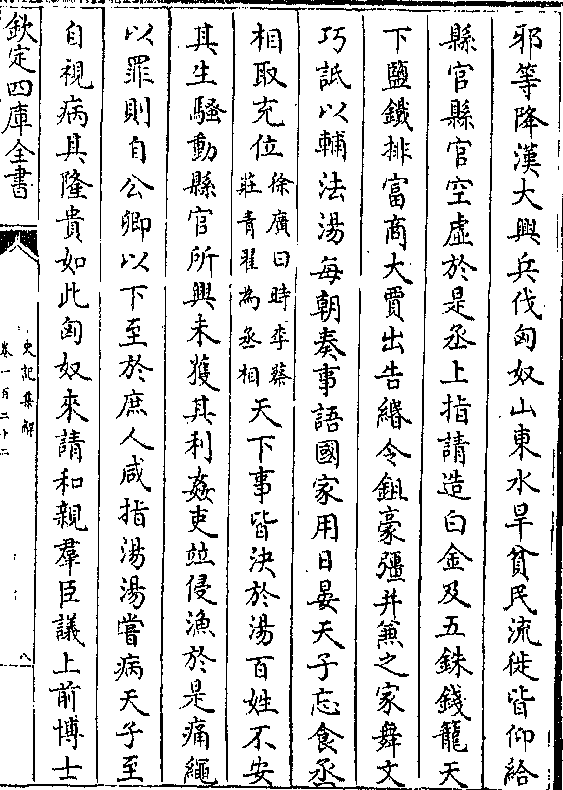 邪等降漢大興兵伐匈奴山東水旱貧民流徙皆仰給
縣官縣官空虛於是丞上指請造白金及五銖錢籠天
下鹽鐵排富商大賈出告緡令鉏豪彊并兼之家舞文
巧詆以輔法湯每朝奏事語國家用日晏天子忘食丞
相取充位徐廣曰時李蔡莊青翟為丞相天下事皆決於湯百姓不安
其生騷動縣官所興未獲其利姦吏竝侵漁於是痛繩
以罪則自公卿以下至於庶人咸指湯湯嘗病天子至
自視病其隆貴如此匈奴來請和親羣臣議上前博士
欽定四庫全書
史記集解
卷一百二十二
八